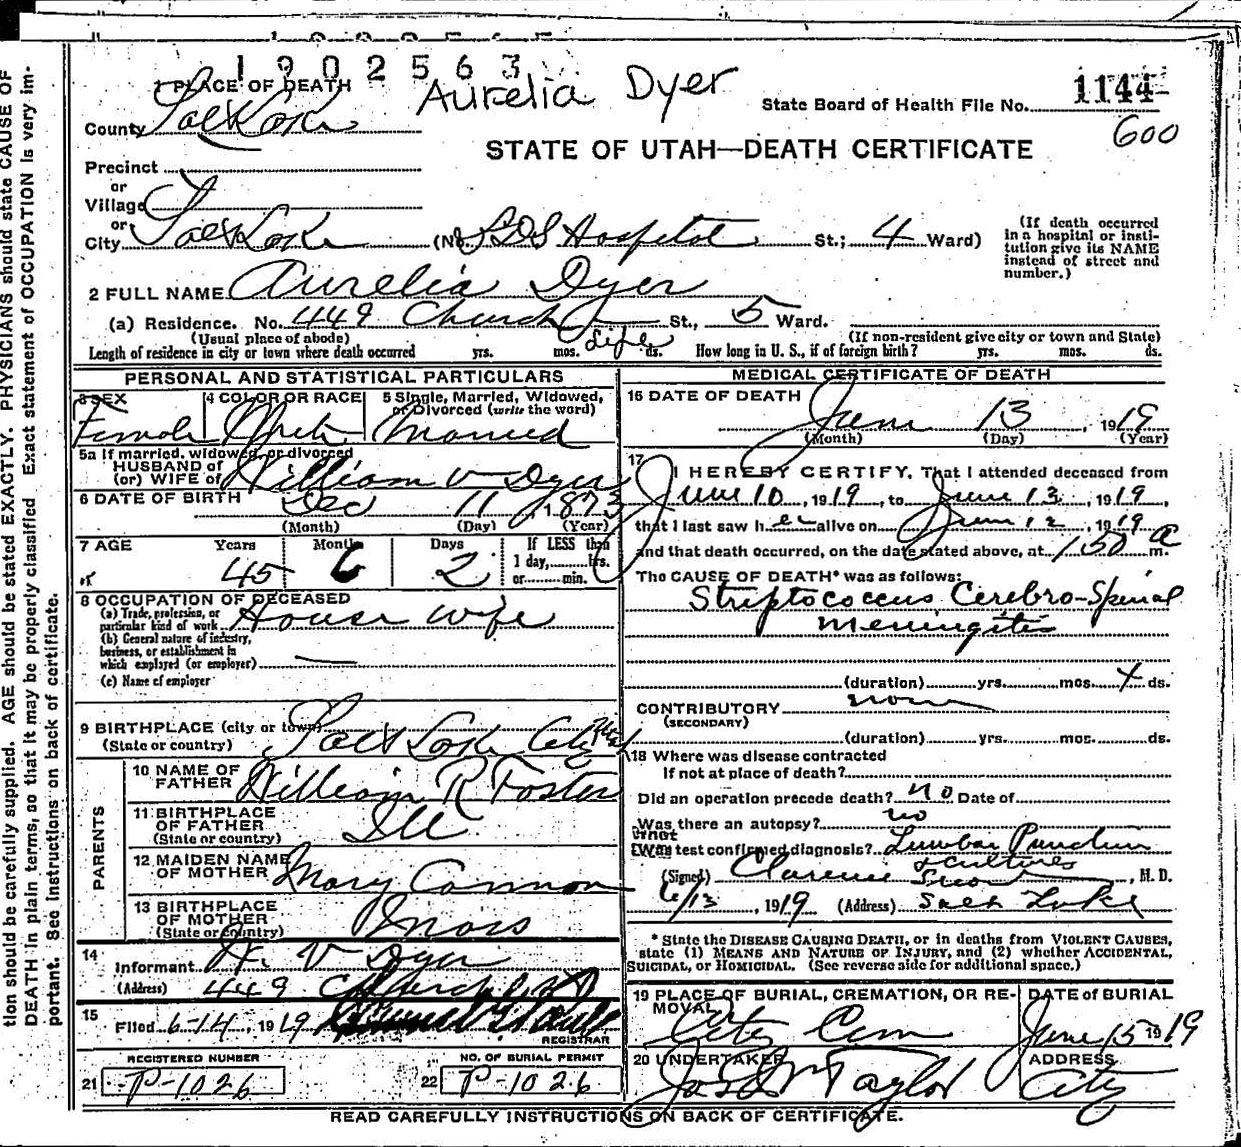 1902563
1 PLACE OF DEATH Aurelia Dyer State Board of Health File No. 1144
600
County Salt Lake
STATE OF UTAH—DEATH CERTIFICATE
Precinct
or
Village
or
City Salt Lake (No. LDS Hospital St.; 4 Ward)
(If death occurred in a hospital or institution give its NAME instead of street and number.)
2 FULL NAME Aurelia Dyer
(a) Residence. No. 449 Church St., 5 Ward.
(Usual place of abode) (If non-resident give city or town and State)
Length of residence in city or town where death occurred yrs. mos. Life ds. How long in U. S., if of foreign birth? yrs. mos. ds.
PERSONAL AND STATISTICAL PARTICULARS
3 SEX 4 COLOR OR RACE 5 Single, Married, Widowed,
or Divorced (write the word)
Female White Married
5a If married, widowed, or divorced
HUSBAND of
(or) WIFE of William V Dyer
6 DATE OF BIRTH Dec 11 1873
(Month) (Day) (Year)
7 AGE Years Months Days If LESS than
1 day,........hrs.
or........min.
45 6 2
8 OCCUPATION OF DECEASED
(a) Trade, profession, or
particular kind of work House wife
(b) General nature of industry,
business, or establishment in
which employed (or employer)
(c) Name of employer
9 BIRTHPLACE (city or town) Salt Lake City Utah
(State or country)
PARENTS
10 NAME OF
FATHER William R Foster
11 BIRTHPLACE
OF FATHER Ill
(State or country)
12 MAIDEN NAME
OF MOTHER Mary Cannon
13 BIRTHPLACE
OF MOTHER
(State or country)
14
Informant W V Dyer
(Address) 449 Church
15
Filed 6-14, 1919
REGISTRAR
REGISTERED NUMBER NO. OF BURIAL PERMIT
21 P-1026 22 P-1026
MEDICAL CERTIFICATE OF DEATH
16 DATE OF DEATH
June 13, 1919
(Month) (Day) (Year)
17
I HEREBY CERTIFY, That I attended deceased from
June 10, 1919, to June 13, 1919,
that I last saw her alive on June 12, 1919
and that death occurred, on the date stated above, at 130 a m.
The CAUSE OF DEATH* was as follows:
Streptococcus Cerebro-Spinal
Meningitis
(duration) yrs. mos. 4 ds.
CONTRIBUTORY none
(SECONDARY)
(duration) yrs. mos. ds.
18 Where was disease contracted
If not at place of death?
Did an operation precede death? no Date of
Was there an autopsy? no
What test confirmed diagnosis? Lumbar Puncture
& cultures
(Signed) Clarence Snow, M. D.
6/13, 1919 (Address) Salt Lake
* State the DISEASE CAUSING DEATH, or in deaths from VIOLENT CAUSES,
state (1) MEANS AND NATURE OF INJURY, and (2) whether ACCIDENTAL,
SUICIDAL, or HOMICIDAL. (See reverse side for additional space.)
19 PLACE OF BURIAL, CREMATION, OR RE- DATE of BURIAL
MOVAL
City Cem June 15 1919
20 UNDERTAKER ADDRESS
Jos Wm Taylor City
READ CAREFULLY INSTRUCTIONS ON BACK OF CERTIFICATE.
tion should be carefully supplied. AGE should be stated EXACTLY. PHYSICIANS should state CAUSE OF
DEATH in plain terms, so that it may be properly classified. Exact statement of OCCUPATION is very im-
portant. See instructions on back of certificate.